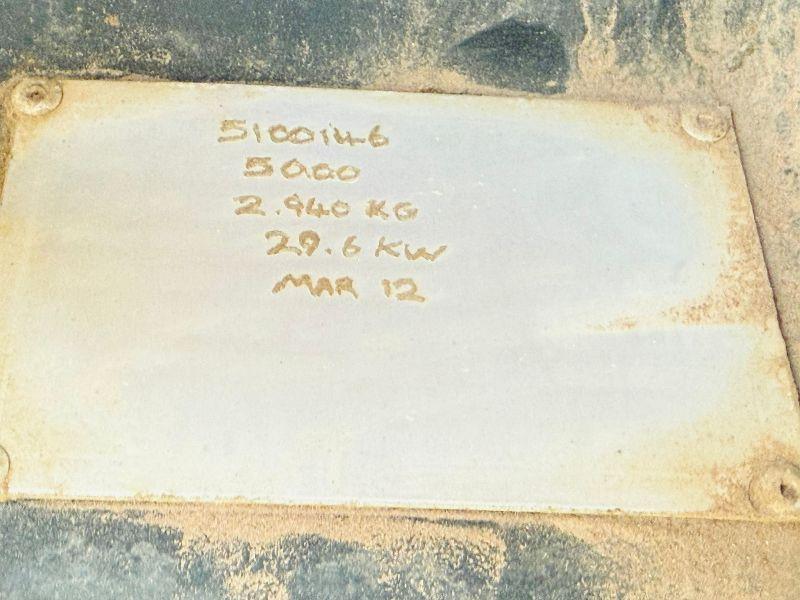 5100146
5000
2.940 KG
29.6 KW
MAR 12